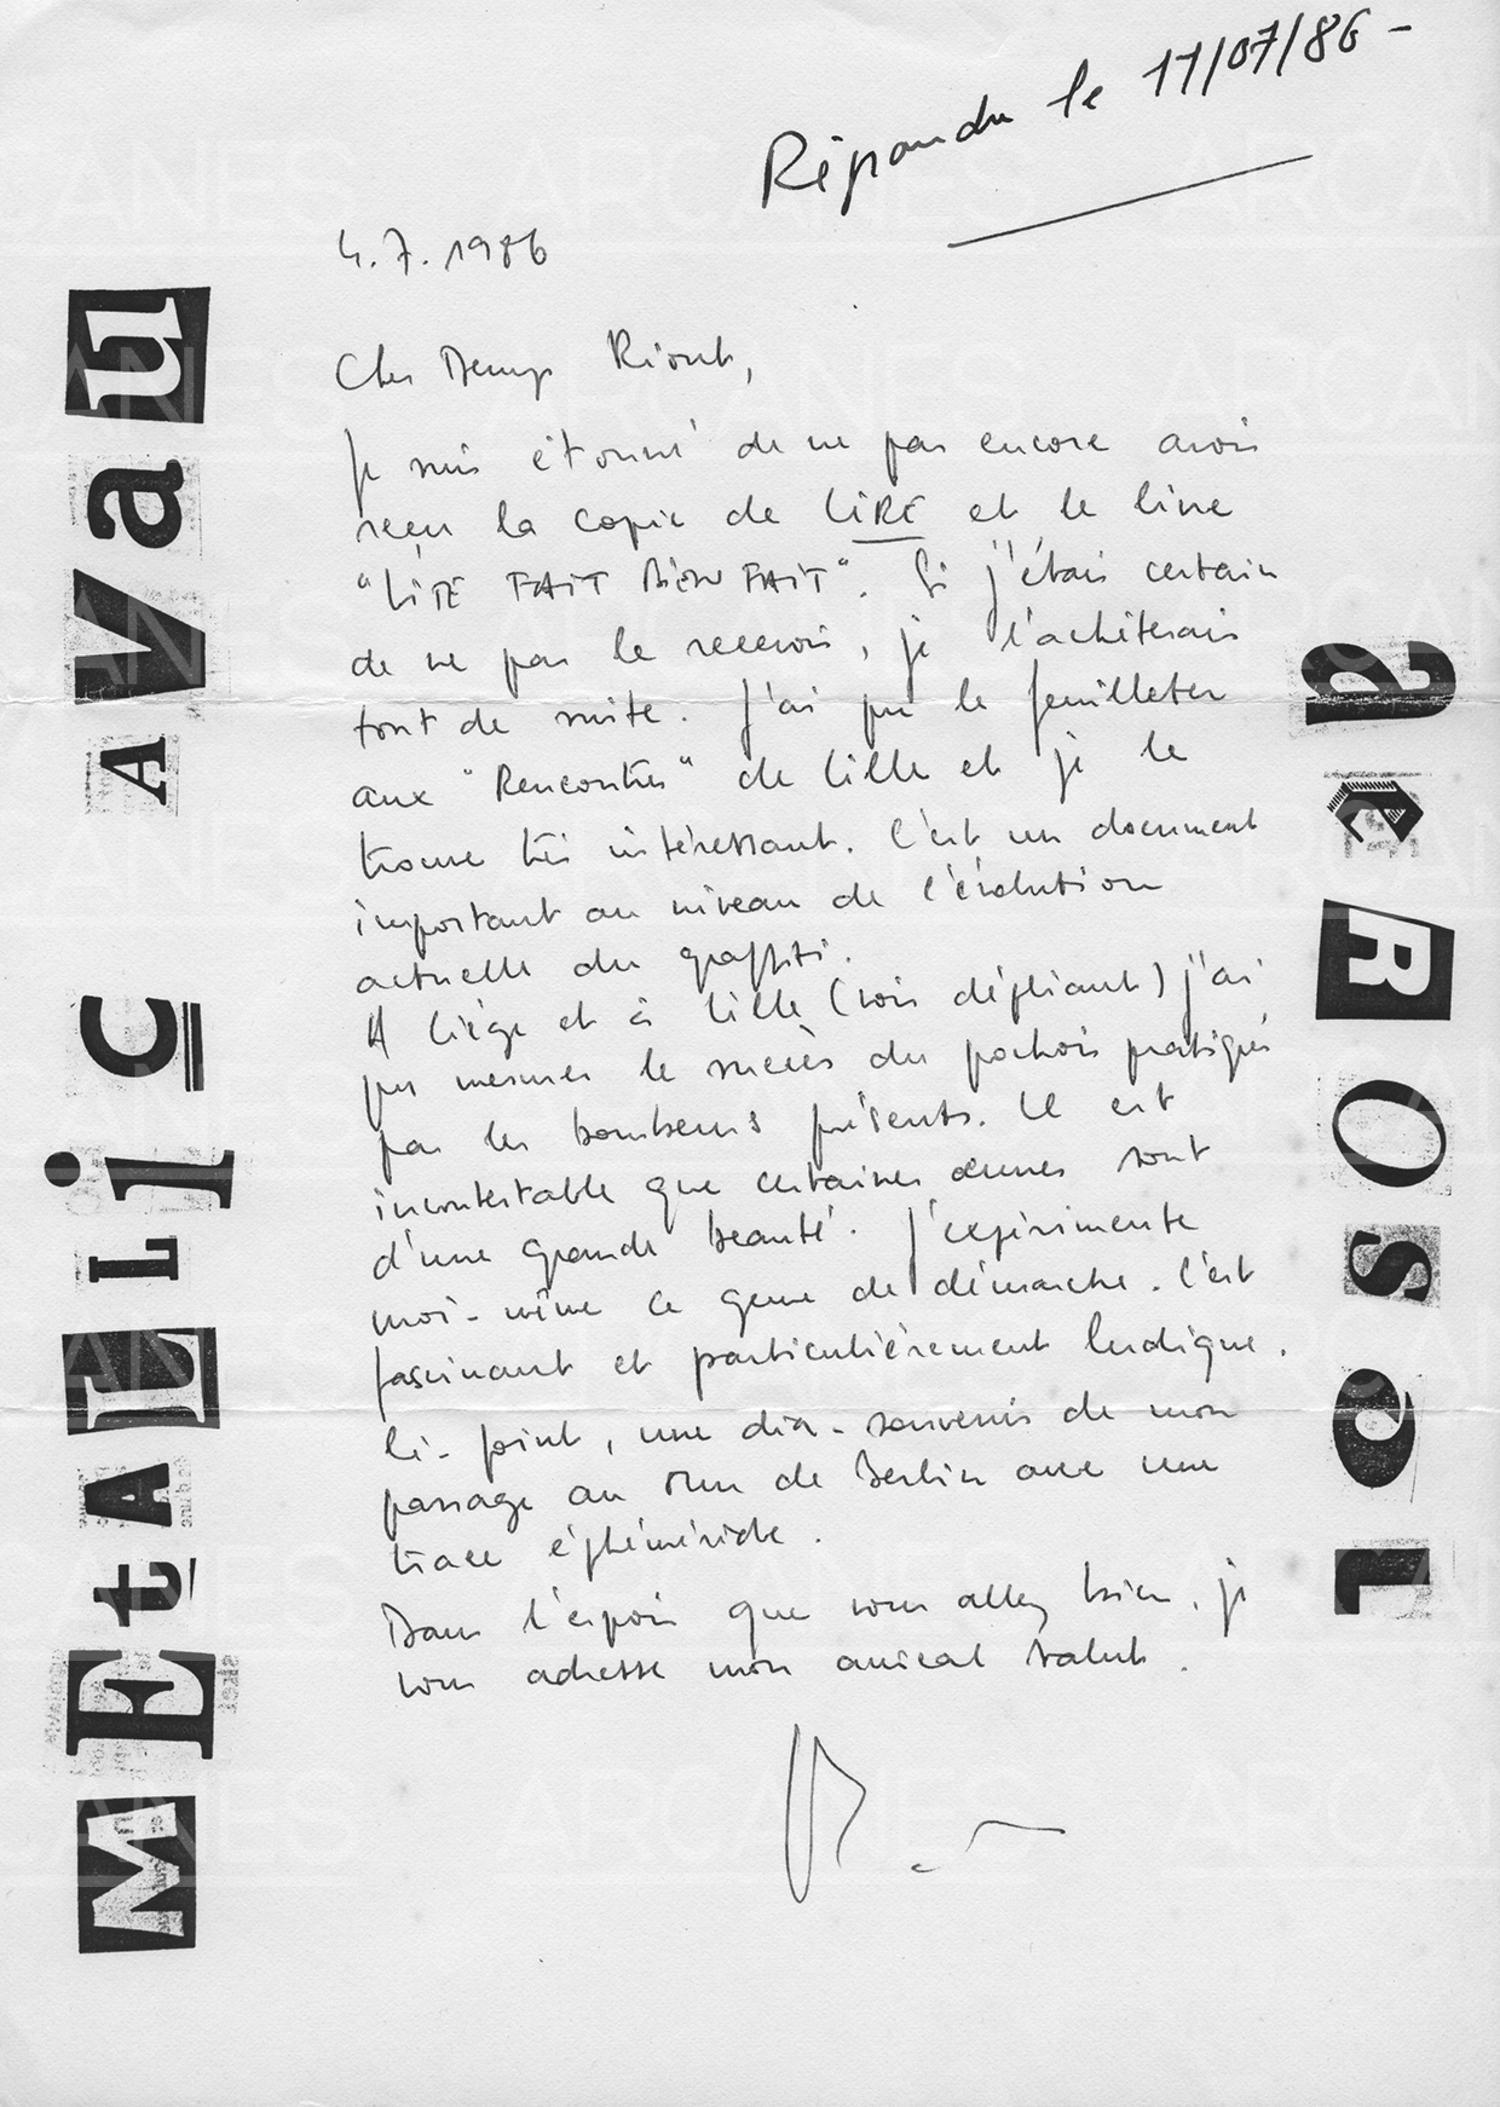 Répondu le 11/07/86 -
4.7.1986
Cher Denys Riout,
Je suis étonné de ne pas encore avoir
reçu la copie de LIRE et le livre
"VITE FAIT BIEN FAIT". Si j'étais certain
de ne pas le recevoir, je l'achèterais
tout de suite. J'ai pu le feuilleter
aux "Rencontres" de Lille et je le
trouve très intéressant. C'est un document
important au niveau de l'évolution
actuelle du graffiti.
A Liège et à Lille (voir dépliant) j'ai
pu mesurer le succès du pochoir pratiqué
par les bombeurs présents. Il est
incontestable que certaines œuvres sont
d'une grande beauté. J'expérimente
moi-même ce genre de démarche. C'est
fascinant et particulièrement ludique.
Ci-joint, une dia-souvenir de mon
passage au mur de Berlin avec une
trace éphéméride.
Dans l'espoir que vous allez bien, je
vous adresse mon amical salut.
MEtALLiC AVau
lcsORea
ARCANES